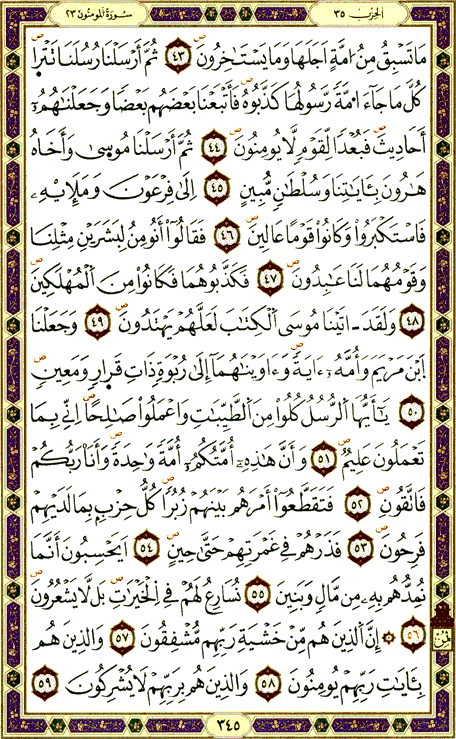 الحزب ٣٥
سورة المومنون ٢٣
مَا تَسْبِقُ مِنُ امَّةٍ اَجَلَهَا وَمَا يَسْتَٰخِرُونَ ٤٣ ثُمَّ أَرْسَلْنَا رُسُلَنَا تَتْرَا
كُلَّ مَا جَآءَ امَّةً رَّسُولُهَا كَذَّبُوهُ فَأَتْبَعْنَا بَعْضَهُم بَعْضًا وَجَعَلْنَٰهُمُۥٓ
أَحَادِيثَ فَبُعْدًا لِّقَوْمٍ لَّا يُومِنُونَ ٤٤ ثُمَّ أَرْسَلْنَا مُوسَىٰ وَأَخَاهُ
هَٰرُونَ بِـَٔايَٰتِنَا وَسُلْطَٰنٍ مُّبِينٍ ٤٥ اِلَىٰ فِرْعَوْنَ وَمَلَإِيْهِۦ
فَاسْتَكْبَرُوا۟ وَكَانُوا۟ قَوْمًا عَالِينَ ٤٦ فَقَالُوٓا۟ أَنُومِنُ لِبَشَرَيْنِ مِثْلِنَا
وَقَوْمُهُمَا لَنَا عَٰبِدُونَ ٤٧ فَكَذَّبُوهُمَا فَكَانُوا۟ مِنَ اَلْمُهْلَكِينَ
٤٨ وَلَقَدَ اٰتَيْنَا مُوسَى اَلْكِتَٰبَ لَعَلَّهُمْ يَهْتَدُونَ ٤٩ وَجَعَلْنَا
اَبْنَ مَرْيَمَ وَأُمَّهُۥٓ ءَايَةً وَءَاوَيْنَٰهُمَآ إِلَىٰ رُبْوَةٍ ذَاتِ قَرَارٍ وَمَعِينٍ
٥٠ يَٰٓأَيُّهَا اَلرُّسُلُ كُلُوا۟ مِنَ اَلطَّيِّبَٰتِ وَاعْمَلُوا۟ صَٰلِحًا اِنِّے بِمَا
تَعْمَلُونَ عَلِيمٌ ٥١ وَأَنَّ هَٰذِهِۦٓ أُمَّتُكُمُۥٓ أُمَّةً وَٰحِدَةً وَأَنَا رَبُّكُمْ
فَاتَّقُونِ ٥٢ فَتَقَطَّعُوٓا۟ أَمْرَهُم بَيْنَهُمْ زُبُرًا كُلُّ حِزْبٍۭ بِمَا لَدَيْهِمْ
فَرِحُونَ ٥٣ فَذَرْهُمْ فِے غَمْرَتِهِمْ حَتَّىٰ حِينٍ ٥٤ اَيَحْسِبُونَ أَنَّمَا
نُمِدُّهُم بِهِۦ مِن مَّالٍ وَبَنِينَ ٥٥ نُسَارِعُ لَهُمْ فِے اِلْخَيْرَٰتِ بَل لَّا يَشْعُرُونَ
٥٦ إِنَّ اَلذِينَ هُم مِّنْ خَشْيَةِ رَبِّهِم مُّشْفِقُونَ ٥٧ وَالذِينَ هُم
بِـَٔايَٰتِ رَبِّهِمْ يُومِنُونَ ٥٨ وَالذِينَ هُم بِرَبِّهِمْ لَا يُشْرِكُونَ ٥٩
ثمن
٣٤٥